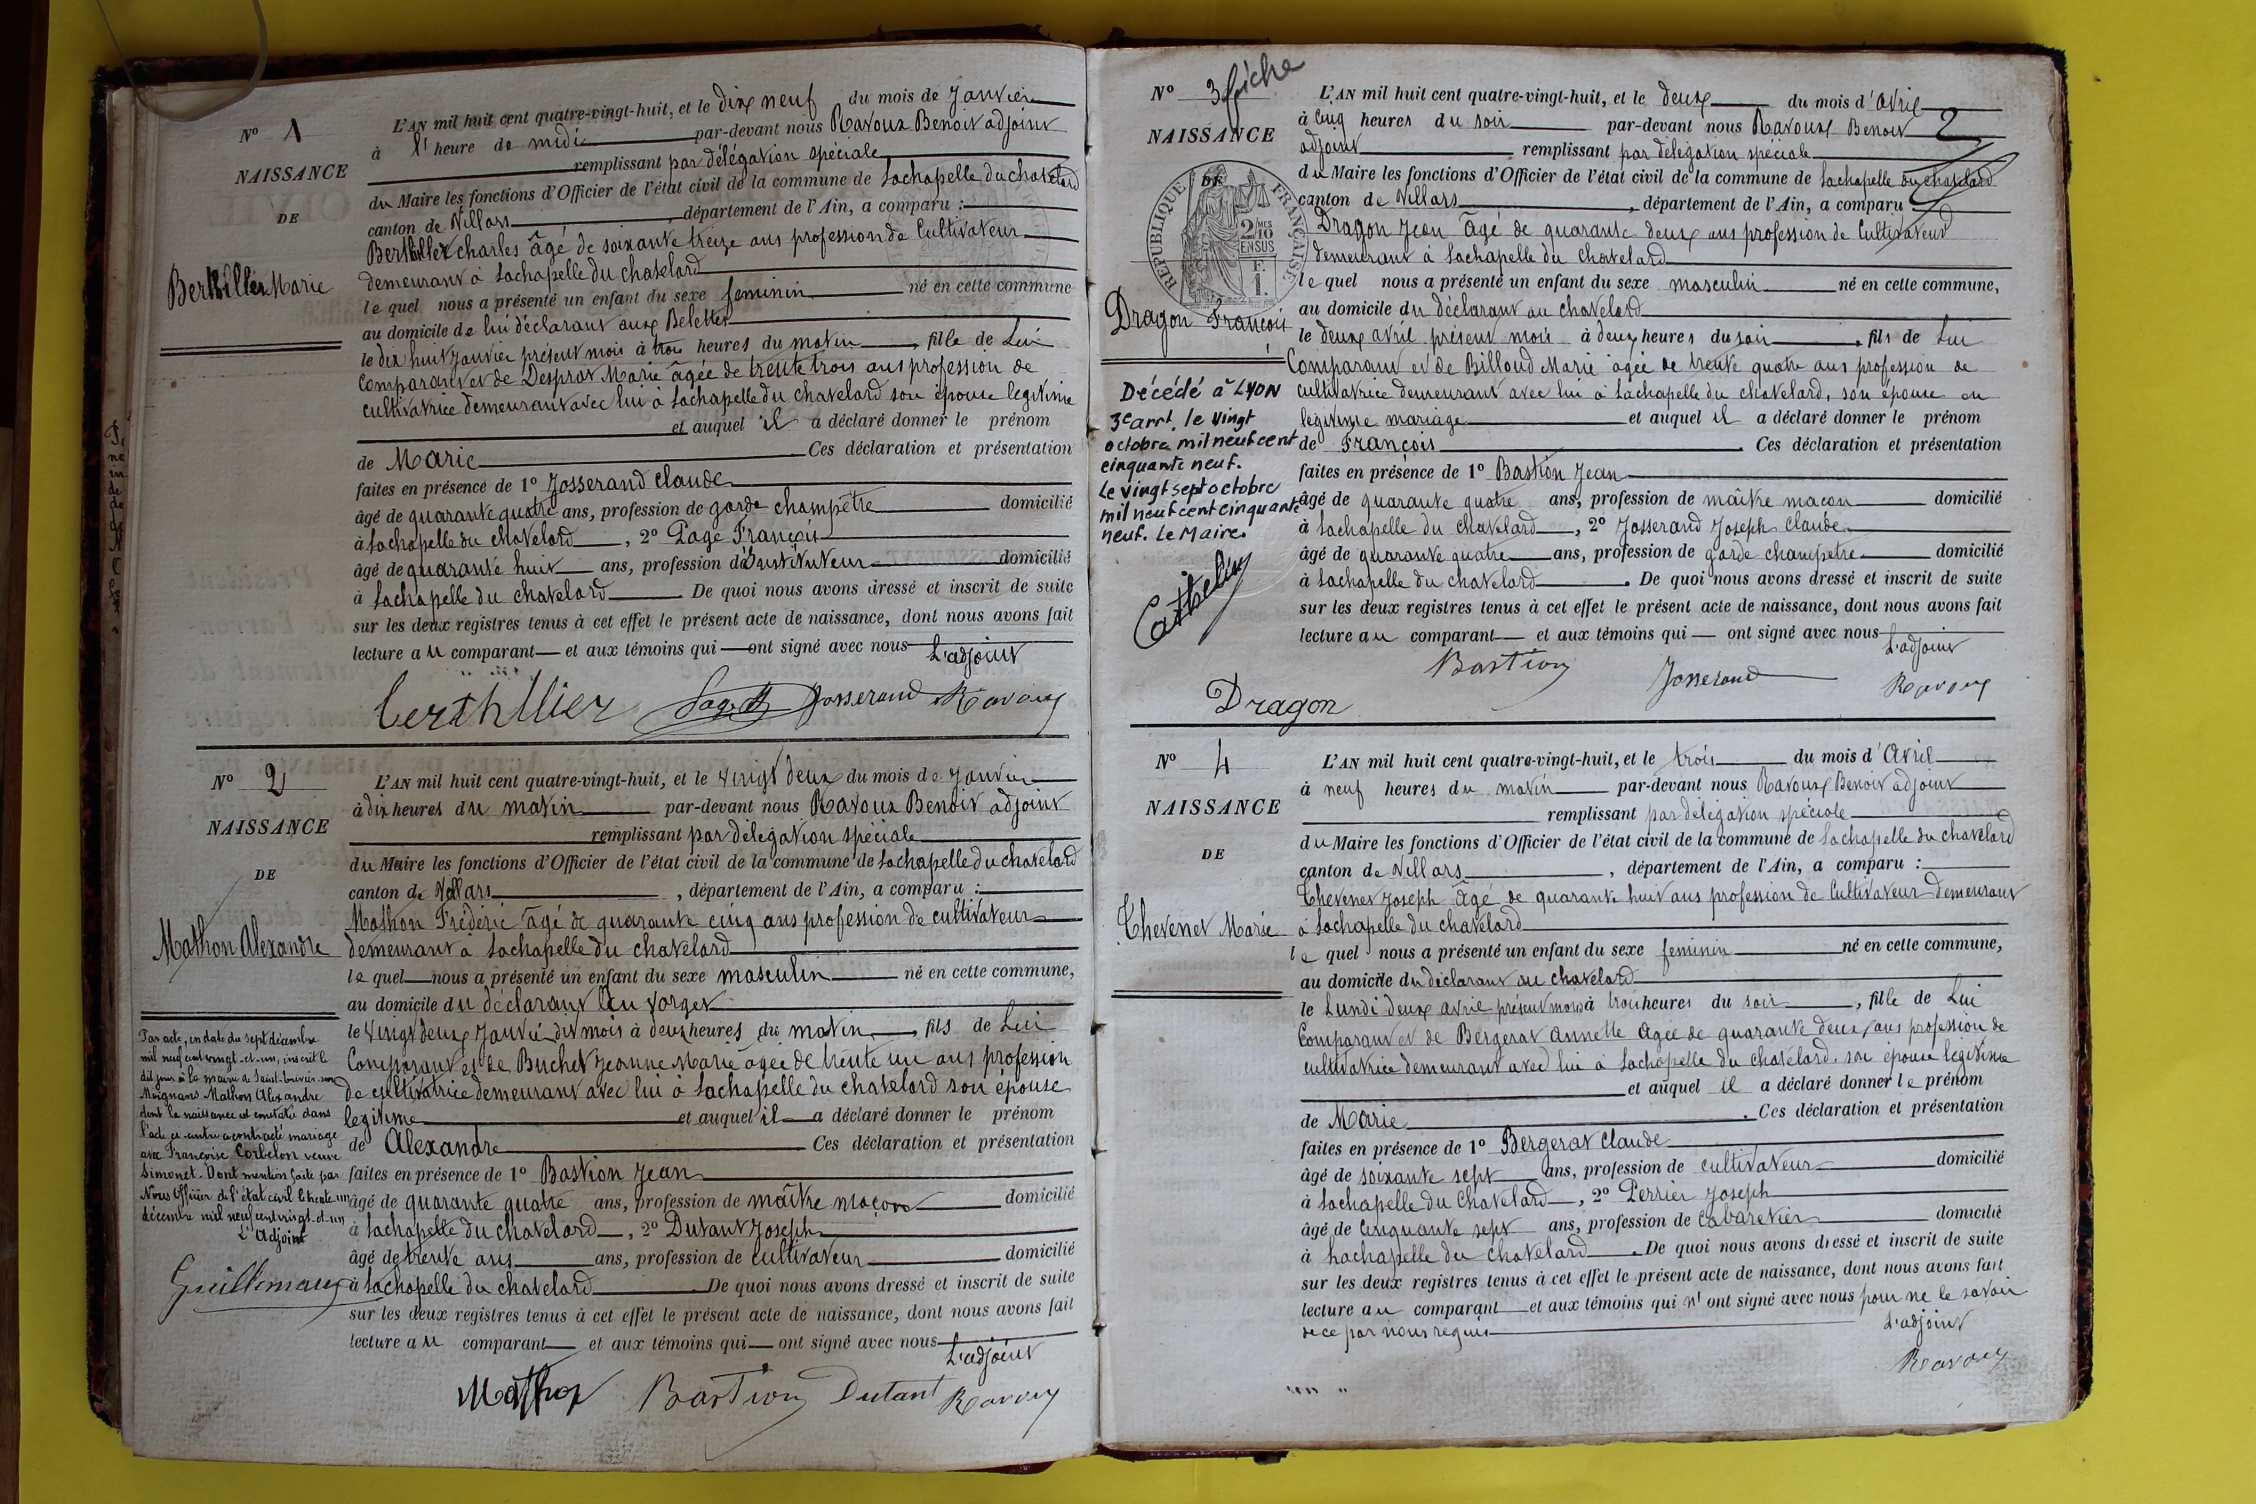 Nº 1
NAISSANCE
DE
Berthillier Marie
L'AN mil huit cent quatre-vingt-huit, et le dix neuf du mois de Janvier
à l' heure de midi par-devant nous Ravoux Benoit adjoint
remplissant par délégation spéciale
du Maire les fonctions d'Officier de l'état civil de la commune de Lachapelle du chatelard
canton de Villars, département de l'Ain, a comparu :
Berthillier charles âgé de soixante treize ans profession de Cultivateur
demeurant à Lachapelle du chatelard
lequel nous a présenté un enfant du sexe feminin né en cette commune
au domicile de lui déclarant aux Belettes
le dix huit Janvier présent mois à trois heures du matin, fille de Lui
Comparant et de Despras Marie âgée de trente trois ans profession de
cultivatrice demeurant avec lui à Lachapelle du chatelard son épouse legitime
et auquel il a déclaré donner le prénom
de Marie Ces déclaration et présentation
faites en présence de 1º Josserand Claude
âgé de quarante quatre ans, profession de garde champêtre domicilié
à Lachapelle du chatelard, 2º Page François
âgé de quarante huit ans, profession d'Instituteur domicilié
à Lachapelle du chatelard De quoi nous avons dressé et inscrit de suite
sur les deux registres tenus à cet effet le présent acte de naissance, dont nous avons fait
lecture au comparant et aux témoins qui ont signé avec nous
L'adjoint
Berthillier Page Josserand Ravoux
Nº 2
NAISSANCE
DE
Mathon Alexandre
L'AN mil huit cent quatre-vingt-huit, et le vingt deux du mois de Janvier
à dix heures du matin par-devant nous Ravoux Benoit adjoint
remplissant par délégation spéciale
du Maire les fonctions d'Officier de l'état civil de la commune de Lachapelle du chatelard
canton de Villars, département de l'Ain, a comparu :
Mathon Fréderic âgé de quarante cinq ans profession de cultivateur
demeurant à Lachapelle du chatelard
lequel nous a présenté un enfant du sexe masculin né en cette commune,
au domicile du déclarant
le vingt deux Janvier dit mois à deux heures du matin, fils de Lui
Comparant et de Buchet Jeanne Marie âgée de trente un ans profession
de cultivatrice demeurant avec lui à Lachapelle du chatelard son épouse
legitime et auquel il a déclaré donner le prénom
de Alexandre Ces déclaration et présentation
faites en présence de 1º Bastion Jean
âgé de quarante quatre ans, profession de maître maçon domicilié
à Lachapelle du chatelard, 2º Dutant Joseph
âgé de trente ans ans, profession de cultivateur domicilié
à Lachapelle du chatelard De quoi nous avons dressé et inscrit de suite
sur les deux registres tenus à cet effet le présent acte de naissance, dont nous avons fait
lecture au comparant et aux témoins qui ont signé avec nous
L'adjoint
Mathon Bastion Dutant Ravoux
Par acte, en date du sept décembre
mil neuf cent vingt-et-un, inscrit le
dit jour à la mairie de Saint-trivier-sur
Moignans Mathon Alexandre
dont la naissance est constatée dans
l'acte ci-contre a contracté mariage
avec Françoise Corbelon veuve
Simonet. Dont mention faite par
Nous Officier de l'état civil le trente-un
décembre mil neuf cent vingt-et-un
L'Adjoint
Guillemaux
Nº 3 fiche
NAISSANCE
DE
RÉPUBLIQUE FRANÇAISE
2/10
MES
EN SUS
F.
1.
Dragon François
Décédé à LYON
3e arrt. le vingt
octobre mil neuf cent
cinquante neuf.
Le vingt sept octobre
mil neuf cent cinquante
neuf. Le Maire.
L'AN mil huit cent quatre-vingt-huit, et le deux du mois d'avril
à cinq heures du soir par-devant nous Ravoux Benoit 2
adjoint remplissant par délégation spéciale
du Maire les fonctions d'Officier de l'état civil de la commune de Lachapelle du chatelard
canton de Villars, département de l'Ain, a comparu
Dragon Jean âgé de quarante deux ans profession de Cultivateur
demeurant à Lachapelle du chatelard
lequel nous a présenté un enfant du sexe masculin né en cette commune,
au domicile du déclarant au chatelard
le deux avril présent mois à deux heures du soir, fils de Lui
Comparant et de Billoud Marie âgée de trente quatre ans profession de
cultivatrice demeurant avec lui à Lachapelle du chatelard, son épouse en
légitime mariage et auquel il a déclaré donner le prénom
de François. Ces déclaration et présentation
faites en présence de 1º Bastion Jean
âgé de quarante quatre ans, profession de maître maçon domicilié
à Lachapelle du chatelard, 2º Josserand Joseph Claude
âgé de quarante quatre ans, profession de garde champêtre domicilié
à Lachapelle du chatelard. De quoi nous avons dressé et inscrit de suite
sur les deux registres tenus à cet effet le présent acte de naissance, dont nous avons fait
lecture au comparant et aux témoins qui ont signé avec nous
L'adjoint
Bastion Josserand Ravoux
Dragon
Nº 4
NAISSANCE
DE
Thevenet Marie
L'AN mil huit cent quatre-vingt-huit, et le trois du mois d'Avril
à neuf heures du matin par-devant nous Ravoux Benoit adjoint
remplissant par délégation spéciale
du Maire les fonctions d'Officier de l'état civil de la commune de Lachapelle du chatelard
canton de Villars, département de l'Ain, a comparu :
Thevenet Joseph âgé de quarante huit ans profession de Cultivateur demeurant
à Lachapelle du chatelard
lequel nous a présenté un enfant du sexe feminin né en cette commune,
au domicile du déclarant au chatelard
le Lundi deux avril présent mois à trois heures du soir, fille de Lui
Comparant et de Bergerat Annette Agée de quarante deux ans profession de
cultivatrice demeurant avec lui à Lachapelle du chatelard, son épouse légitime
et auquel il a déclaré donner le prénom
de Marie. Ces déclaration et présentation
faites en présence de 1º Bergerat Claude
âgé de soixante sept ans, profession de cultivateur domicilié
à Lachapelle du chatelard, 2º Perrier Joseph
âgé de Cinquante sept ans, profession de Cabaretier domicilié
à Lachapelle du chatelard. De quoi nous avons dressé et inscrit de suite
sur les deux registres tenus à cet effet le présent acte de naissance, dont nous avons fait
lecture au comparant et aux témoins qui n'ont signé avec nous pour ne le savoir
de ce par nous requis
L'adjoint
Ravoux